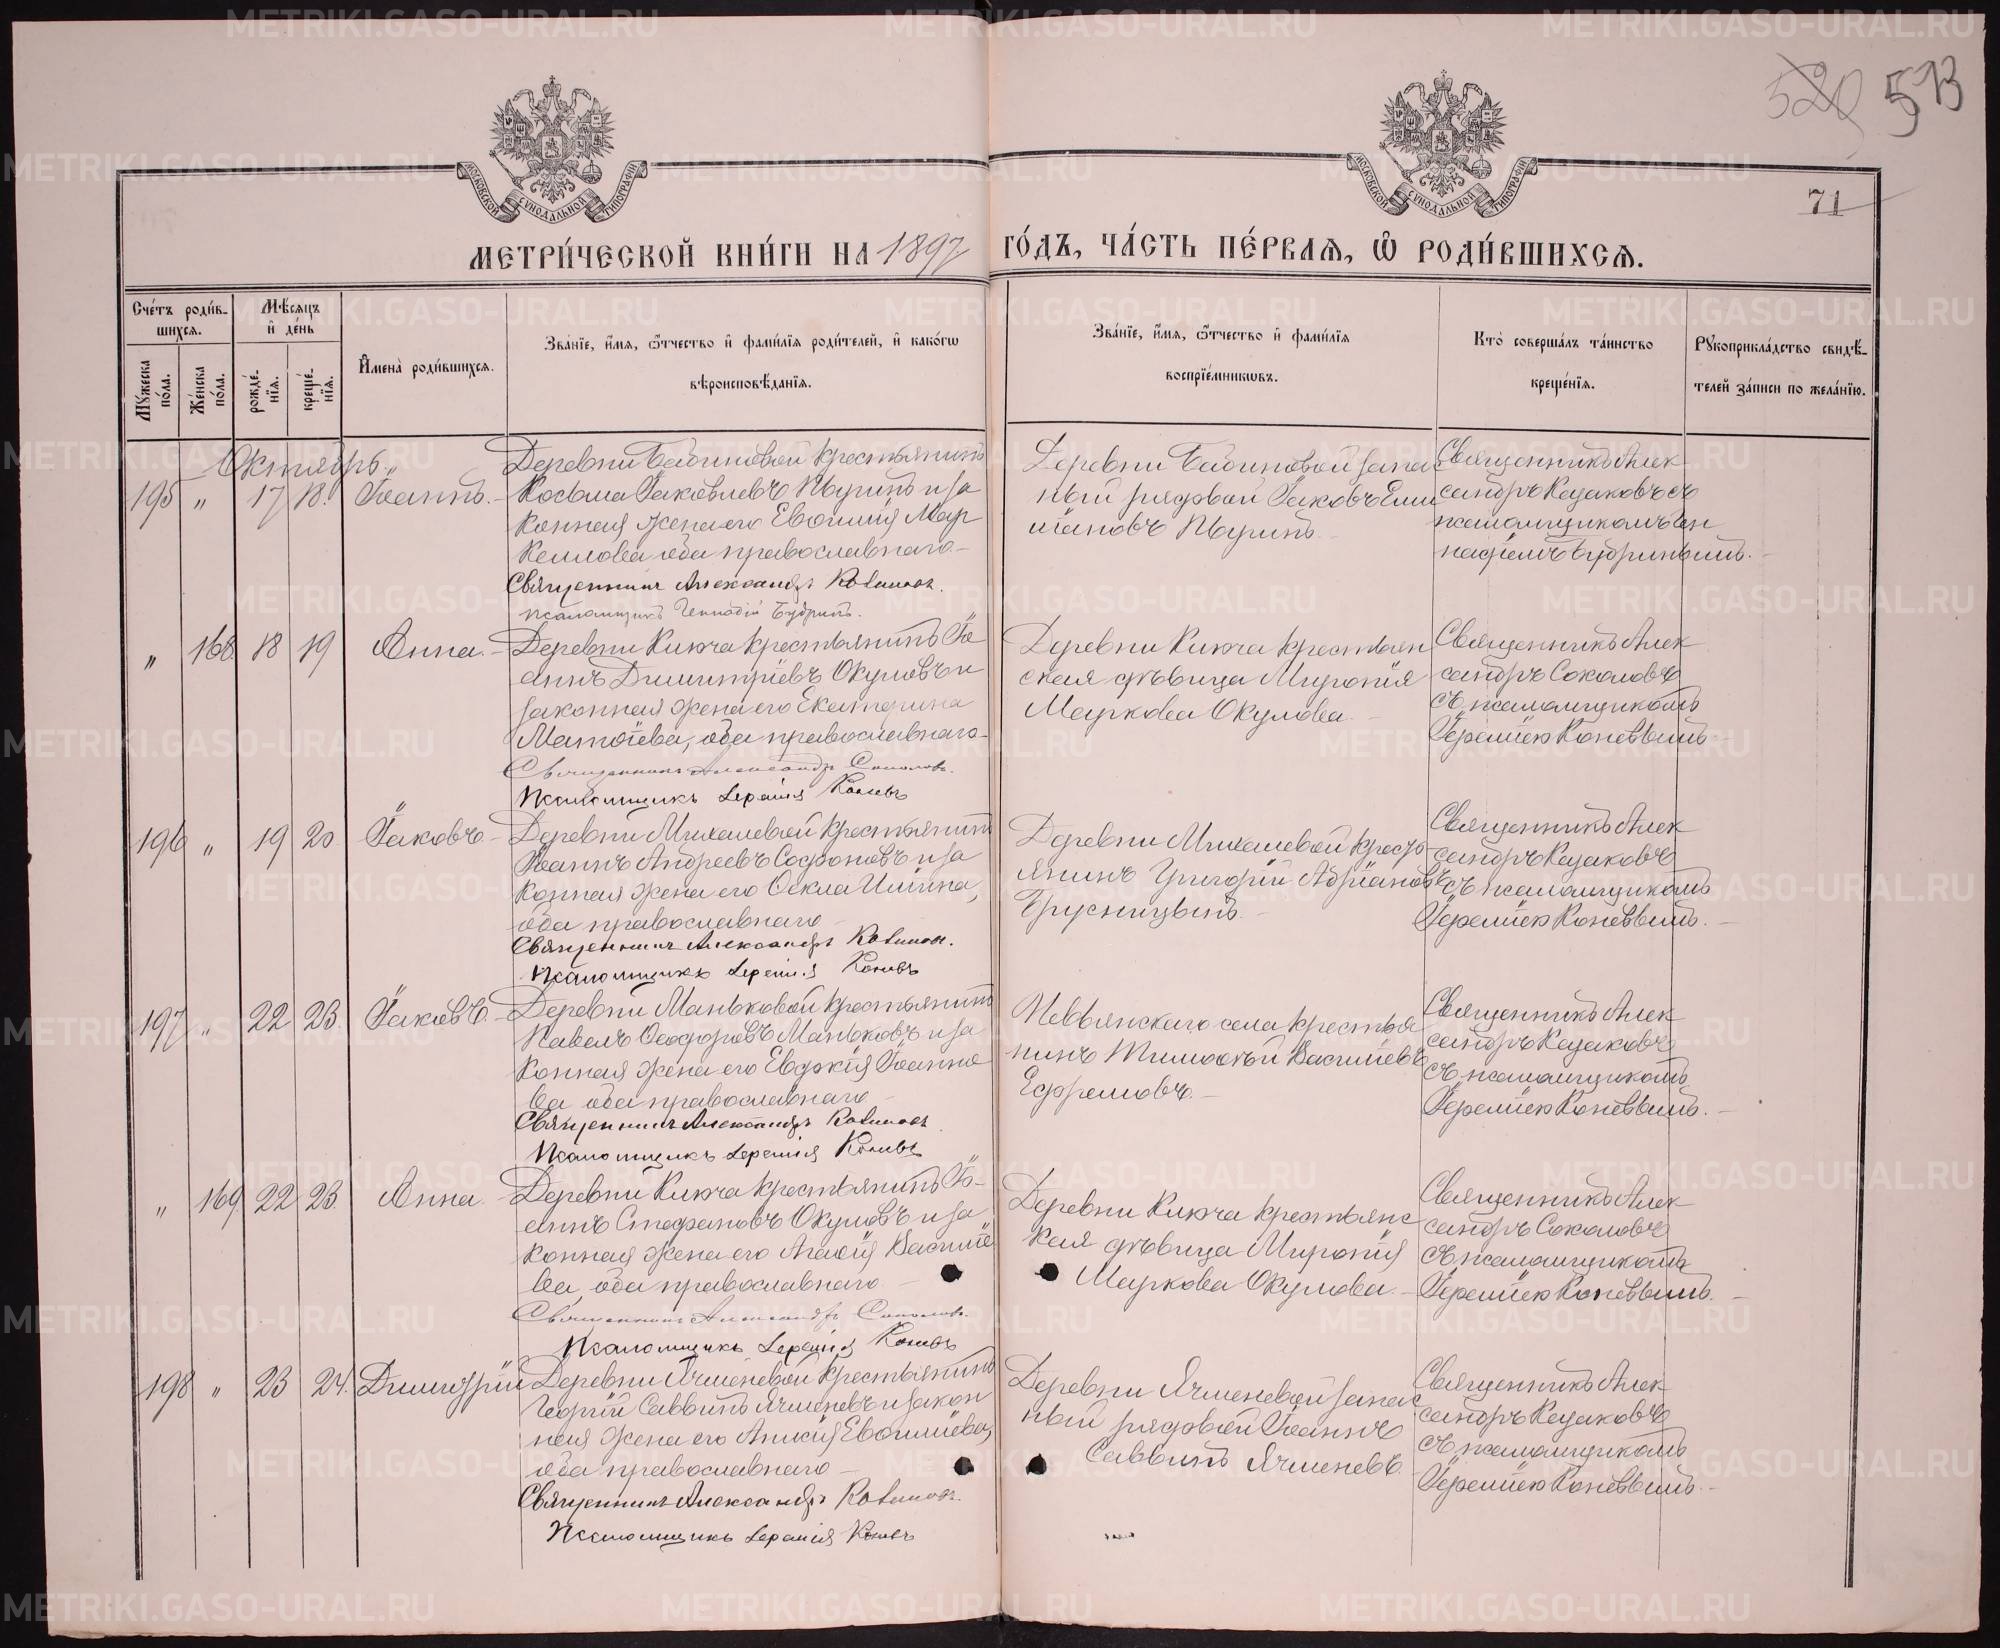 520 513
71
МОСКОВСКОЙ СУНОДАЛЬНОЙ ТИПОГРАФІИ
МОСКОВСКОЙ СУНОДАЛЬНОЙ ТИПОГРАФІИ
МЕТРИ́ЧЕСКОЙ КНИ́ГИ НА 1897 ГО́ДЪ, ЧА́СТЬ ПЕ́РВАѦ, Ѡ҆ РОДИ́ВШИХСѦ.
Сче́тъ роди́в-
шихсѧ.
Мѣ́сѧцъ
и҆ де́нь
И҆мена̀ роди́вшихсѧ.
Зва́нїе, и҆́мѧ, ѻ҆́тчество и҆ фами́лїѧ роди́телей, и҆ како́гѡ
вѣроисповѣ́данїѧ.
Зва́нїе, и҆́мѧ, ѻ҆́тчество и҆ фами́лїѧ
воспрїе́мникѡвъ.
Кто̀ соверша́лъ та́инство
креще́нїѧ.
Рꙋкоприкла́дство свидѣ́-
телей за́писи по жела́нїю.
Мꙋ́жеска
по́ла.
Же́нска
по́ла.
рожде́-
нїѧ.
креще́-
нїѧ.
Октябрь.
195 " 17 18. Іоаннъ.
Деревни Бабиновой крестьянинъ
Косьма Іаковлевъ Пыринъ и за
конная жена его Евѳимія Мар
келлова оба православнаго
Священникъ Александръ Казаковъ.
Псаломщикъ Геннадій Бубринъ.
Деревни Бабиновой запас
ный рядовой Іаковъ
Пыринъ
Священникъ Алек
сандръ Казаковъ съ
псаломщикомъ Ген
надіемъ Бубринымъ.
" 168 18 19 Анна.
Деревни Ключа крестьянинъ Іо
аннъ Димитріевъ Окуловъ и
законная жена его Екатерина
Матѳіева, оба православнаго
Священникъ Александръ Соколовъ.
Псаломщикъ Іеремія Коневъ
Деревни Ключа крестьян
ская дѣвица Миропія
Маркова Окулова.
Священникъ Алек
сандръ Соколовъ
съ псаломщикомъ
Іереміею Коневымъ
196 " 19 20 Іаковъ.
Деревни Михалевой крестьянинъ
Іоаннъ Андреевъ Софоновъ и за
конная жена его Ѳекла Иліина,
оба православнаго
Священникъ Александръ Казаковъ.
Псаломщикъ Іеремія Коневъ
Деревни Михалевой кресть
янинъ Григорій Адріановъ
Брусницынъ
Священникъ Алек
сандръ Казаковъ
съ псаломщикомъ
Іереміею Коневымъ.
197 " 22 23. Іаковъ.
Деревни Маньковой крестьянинъ
Павелъ Ѳеодоровъ Маньковъ и за
конная жена его Евдокія Іоанно
ва оба православнаго
Священникъ Александръ Казаковъ
Псаломщикъ Іеремія Коневъ
Невьянскаго села крестья
нинъ Тимоѳей Васильевъ
Ефремовъ.
Священникъ Алек
сандръ Казаковъ
съ псаломщикомъ
Іереміею Коневымъ.
" 169 22 23. Анна.
Деревни Ключа крестьянинъ Іо-
аннъ Стефановъ Окуловъ и за
конная жена его Агаѳія Василіе
ва, оба православнаго
Священникъ Александръ Соколовъ.
Псаломщикъ Іеремія Коневъ
Деревни Ключа крестьянс
кая дѣвица Миропія
Маркова Окулова.
Священникъ Алек
сандръ Соколовъ
съ псаломщикомъ
Іереміею Коневымъ.
198 " 23 24. Димитрій
Деревни Ячменевой крестьянинъ
Георгій Саввинъ Ячменевъ и закон
ная жена его Анисія Евѳиміева,
оба православнаго
Священникъ Александръ Казаковъ.
Псаломщикъ Іеремія Коневъ
Деревни Ячменевой запас
ный рядовой Іоаннъ
Саввинъ Ячменевъ
Священникъ Алек
сандръ Казаковъ
съ псаломщикомъ
Іереміею Коневымъ.
METRIKI.GASO-URAL.RU